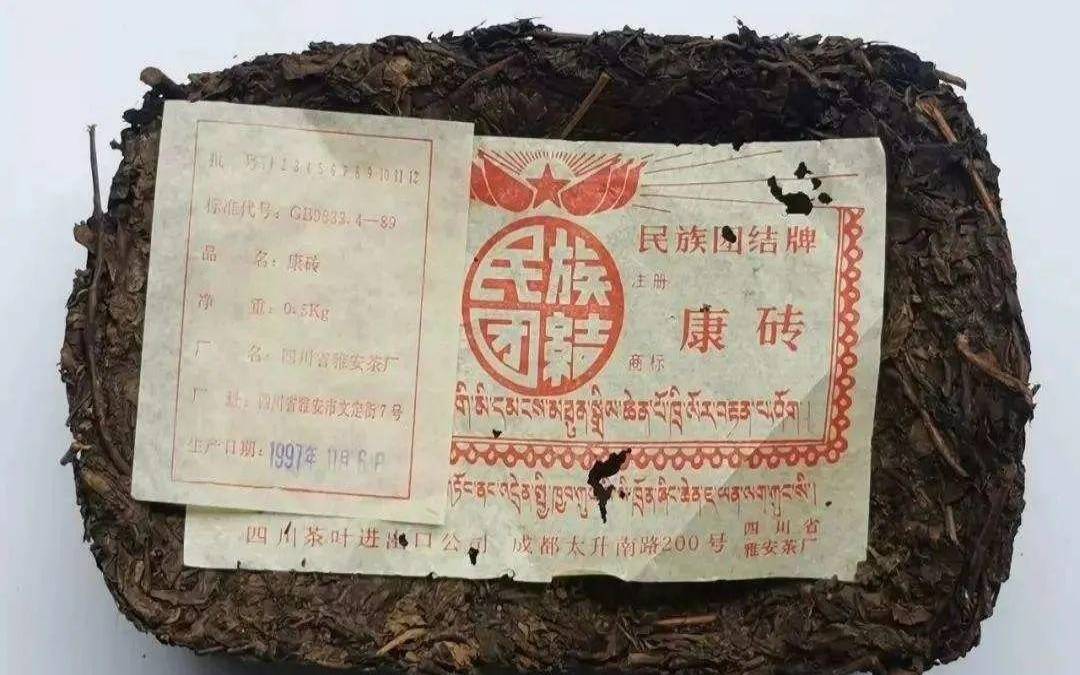 批 号:1 2 3 4 5 6 7 8 9 10 11 12
标准代号:GB9833.4—89
品 名:康砖
净 重:0.5Kg
厂 名:四川省雅安茶厂
厂 址:四川省雅安市文定街7号
生产日期:1997年 11月 6日
民族
团结
民族团结牌
注册
康砖
商标
四川茶叶进出口公司 成都太升南路200号
四川省
雅安茶厂